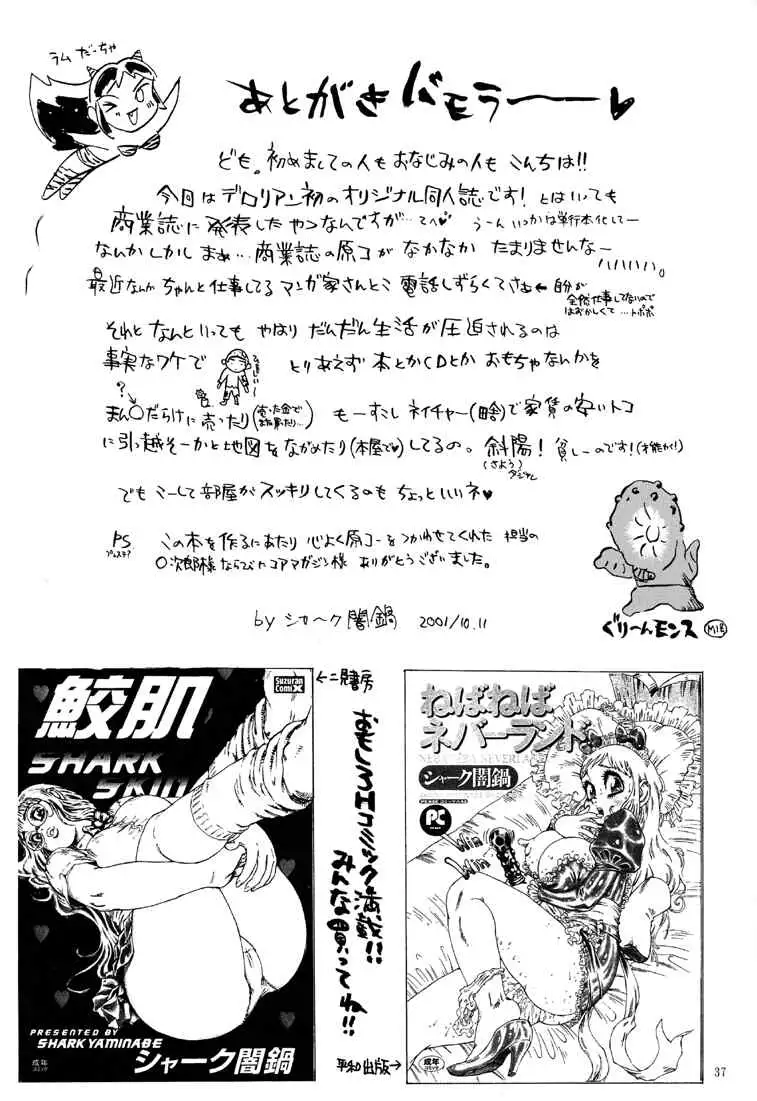 ラムだーちゃ
あとがきバモラーー♥
ども。初めましての人もおなじみの人もこんちは!!
今回はデロリアン初のオリジナル同人誌です! とはいっても
商業誌に発表したやつなんですが…てへ♥ うーんいつかは単行本化してー
なんかしかしまぁ…商業誌の原コがなかなかたまりませんなー
ハハハハハ。
最近なんかちゃんと仕事してるマンガ家さんとこ電話しずらくてさぁ←自分が
全然仕事してないので
はずかしくて…トポポ
それとなんといってもやはりだんだん生活が圧迫されるのは
事実なワケで とりあえず本とかCDとかおもちゃなんかを
?
まん〇だらけに売ったり(売った金で
また買ったり…) もーすこしネイチャー(略)で家賃の安いトコ
に引っ越そーかと地図をながめたり(本屋で♥)してるの。斜陽! 貧しーのです!(才能が!)
(さよう)
でもこーして部屋がスッキリしてくるのもちょっといいネ♥
PS
この本を作るにあたり心よく原コーをつかわせてくれた担当の
〇次郎様ならびにコアマガジン様ありがとうございました。
by シャーク闇鍋 2001/10.11
ぐりーんモンス
M1号
Suzuran
ComiX
←二見書房
鮫肌
SHARK
SKIN
PRESENTED BY
SHARK YAMINABE
シャーク闇鍋
成年
コミック
おもしろHコミック満載!!
みんな買ってね!!
平和出版→
ねばねば
ネバーランド
NEBA NEBA NEVERLAND
シャーク闇鍋
PC
Win
Win
成年
コミック
37